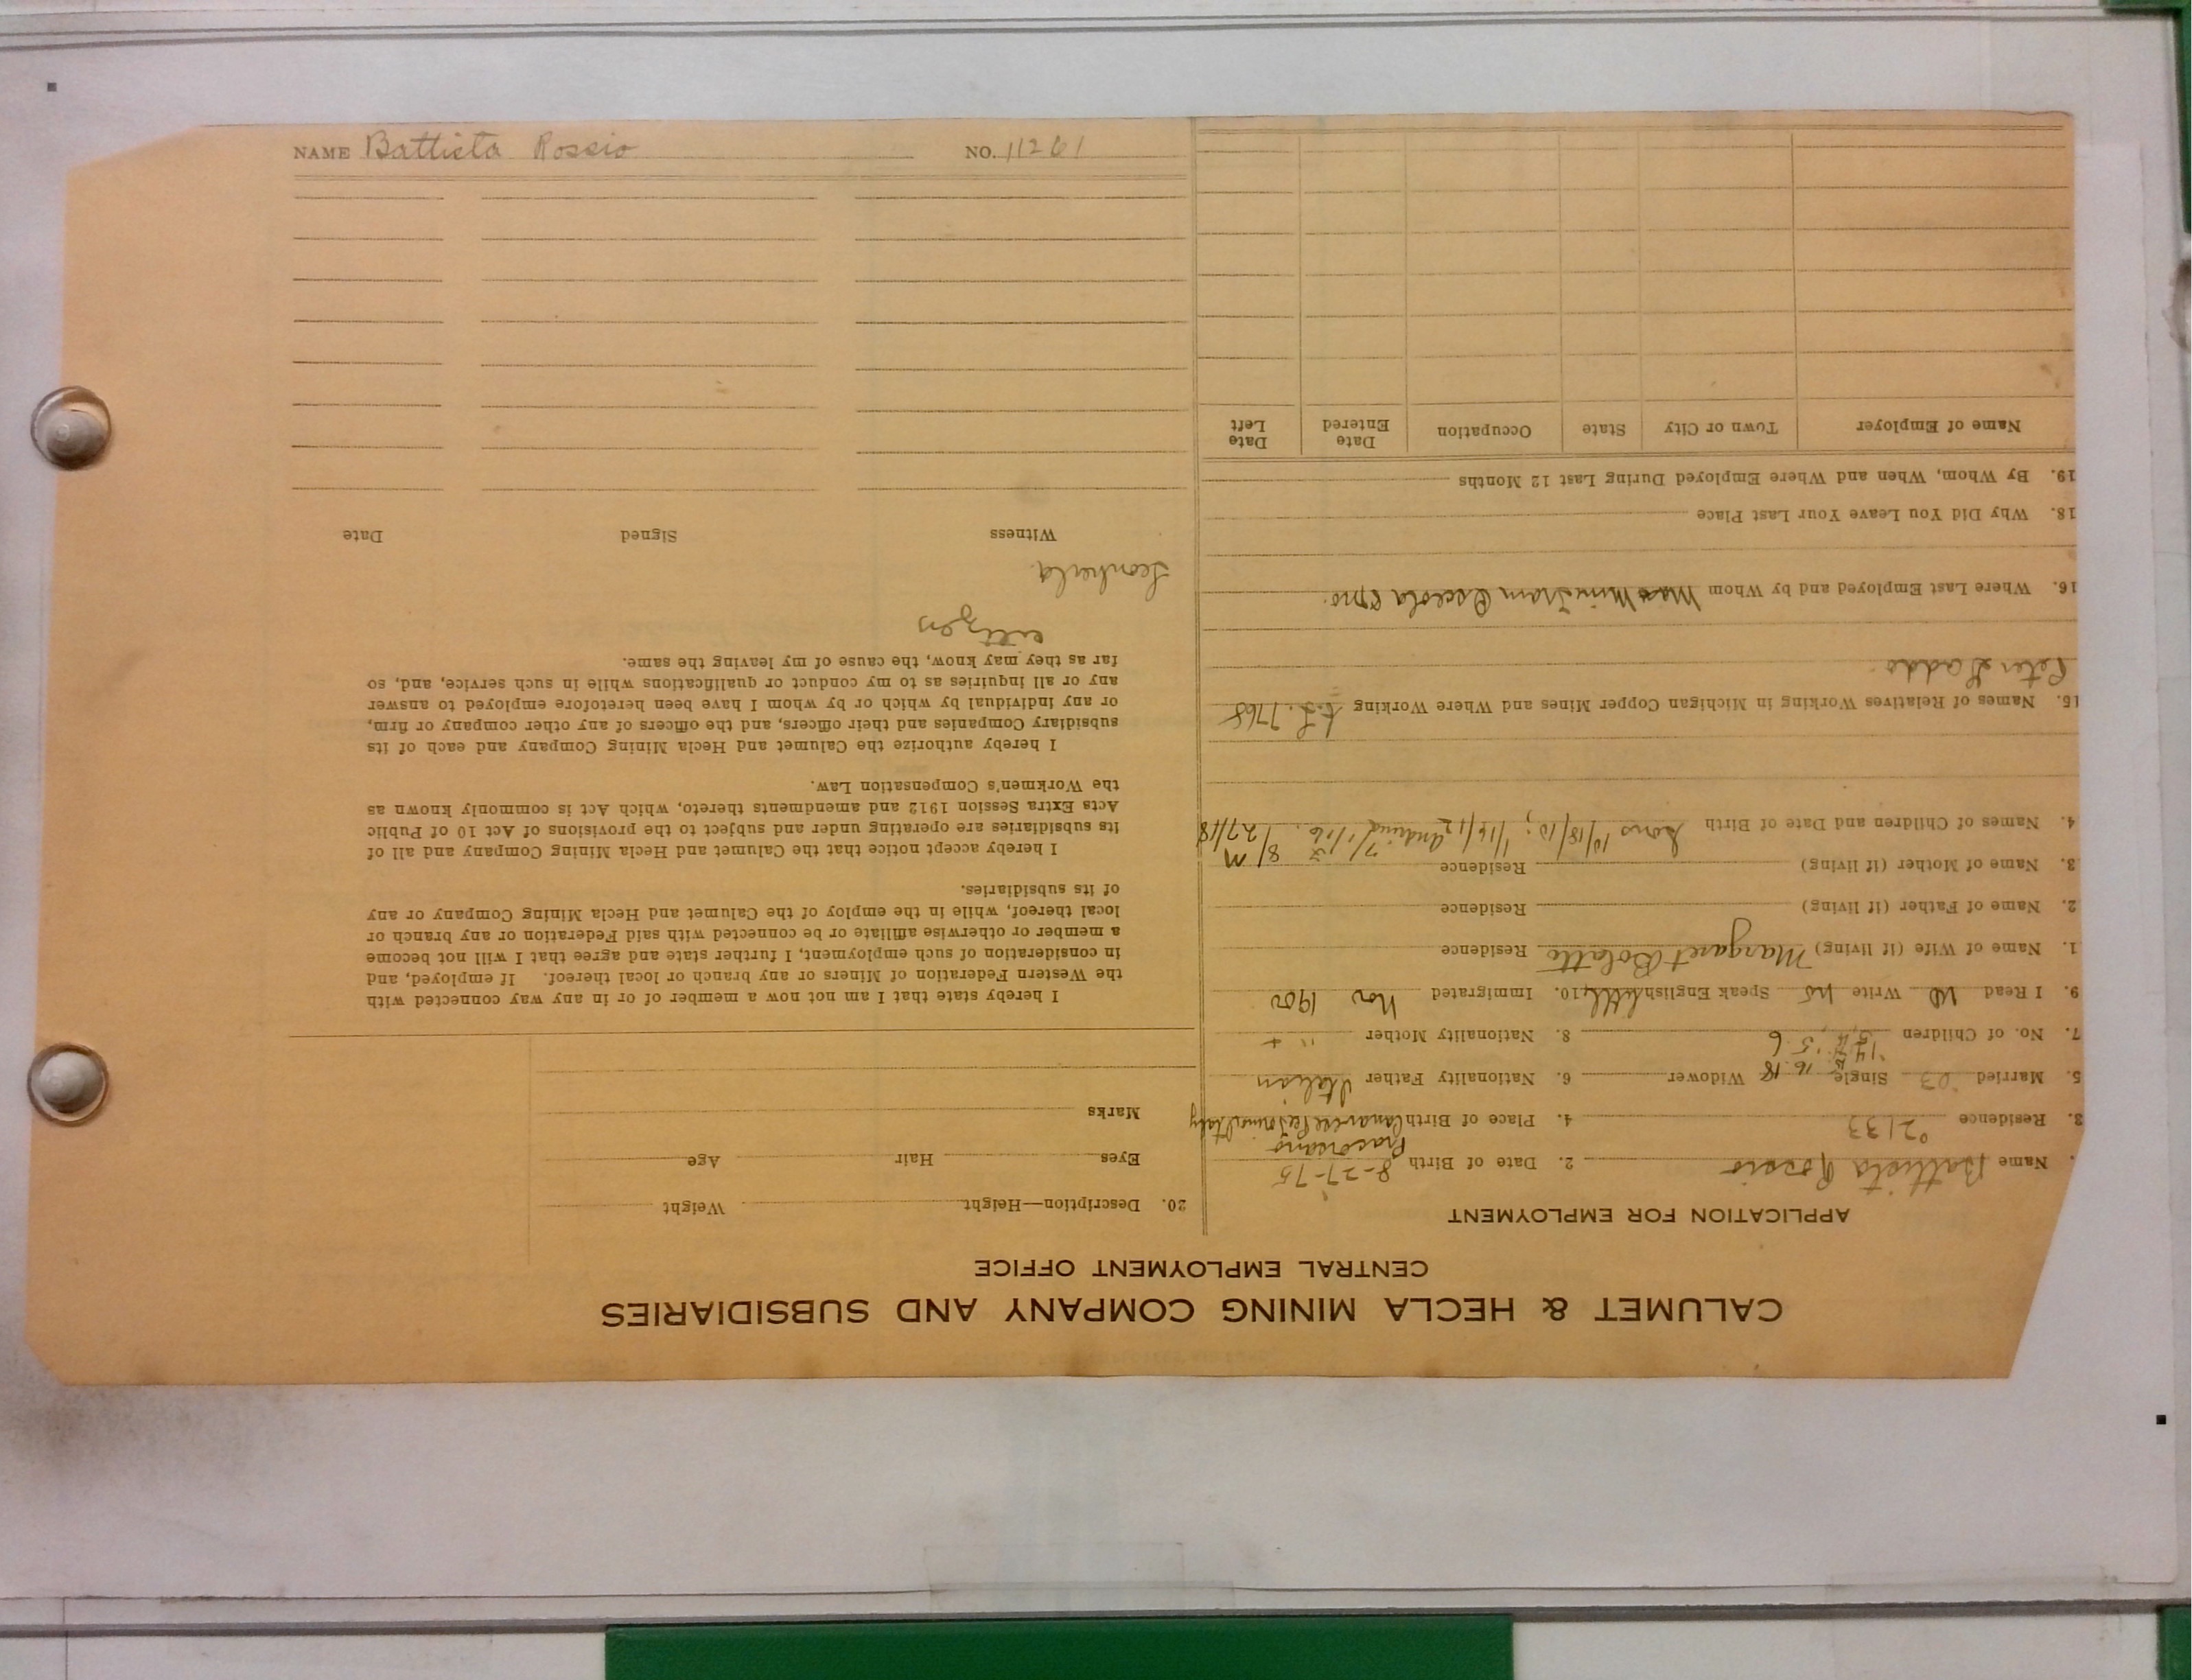 CALUMET & HECLA MINING COMPANY AND SUBSIDIARIES
CENTRAL EMPLOYMENT OFFICE
APPLICATION FOR EMPLOYMENT
. Name Battista Rossio 2. Date of Birth 8-27-75
3. Residence 2133 4. Place of Birth Italy
5. Married '03 Single Widower 6. Nationality Father Italian
'14, 16 18
7. No. of Children 6 8. Nationality Mother "
9. I Read no Write no Speak English little 10. Immigrated Nov 1902
1. Name of Wife (if living) Margaret Bolatto Residence
2. Name of Father (if living) Residence
3. Name of Mother (if living) Residence
4. Names of Children and Date of Birth 10/18/10; 1/16/12 7/1/16. 8/27/18
15. Names of Relatives Working in Michigan Copper Mines and Where Working 7768
Peter Gaddo
16. Where Last Employed and by Whom Osceola
18. Why Did You Leave Your Last Place
19. By Whom, When and Where Employed During Last 12 Months
Name of Employer Town or City State Occupation Date Entered Date Left
20. Description—Height Weight
Eyes Hair Age
Marks
I hereby state that I am not now a member of or in any way connected with
the Western Federation of Miners or any branch or local thereof. If employed, and
in consideration of such employment, I further state and agree that I will not become
a member or otherwise affiliate or be connected with said Federation or any branch or
local thereof, while in the employ of the Calumet and Hecla Mining Company or any
of its subsidiaries.
I hereby accept notice that the Calumet and Hecla Mining Company and all of
its subsidiaries are operating under and subject to the provisions of Act 10 of Public
Acts Extra Session 1912 and amendments thereto, which Act is commonly known as
the Workmen's Compensation Law.
I hereby authorize the Calumet and Hecla Mining Company and each of its
subsidiary Companies and their officers, and the officers of any other company or firm,
or any individual by which or by whom I have been heretofore employed to answer
any or all inquiries as to my conduct or qualifications while in such service, and, so
far as they may know, the cause of my leaving the same.
citizen
Witness Signed Date
NAME Battista Rossio NO. 11261